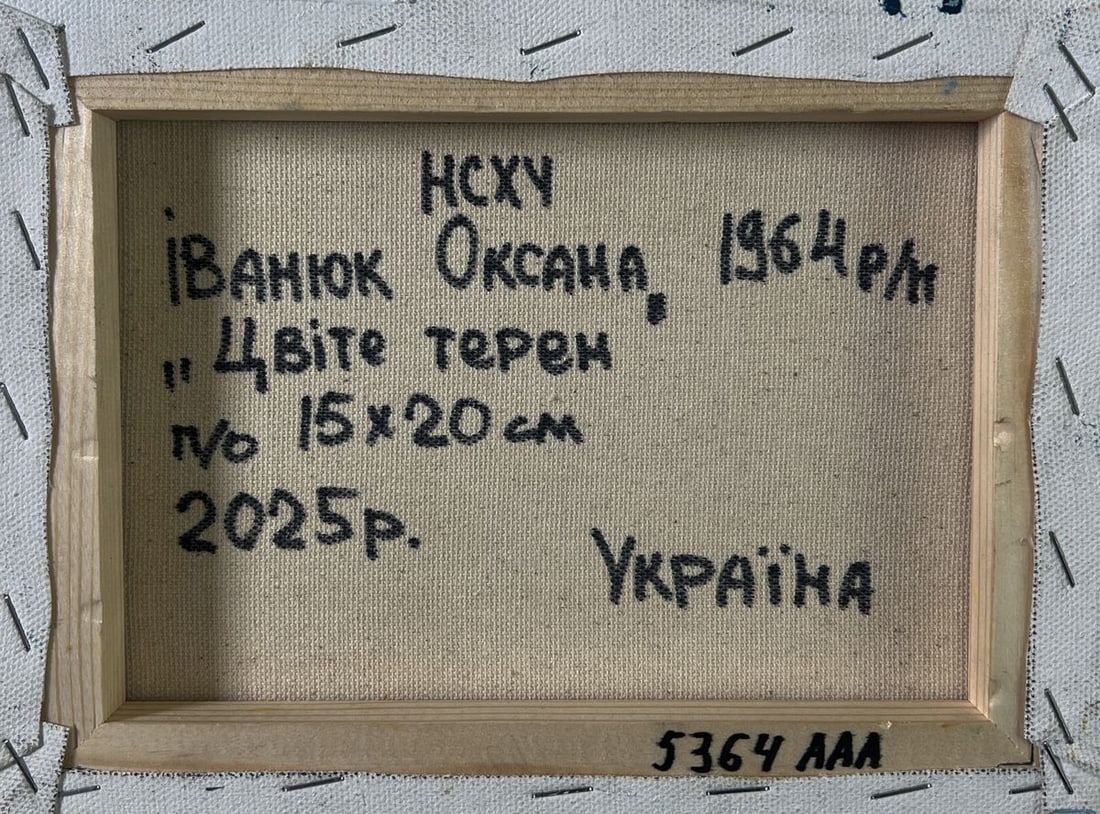 НСХУ
Іванюк Оксана, 1964 р/н
„Цвіте терен"
п/о 15х20 см
2025р.
Україна
5364 AAA